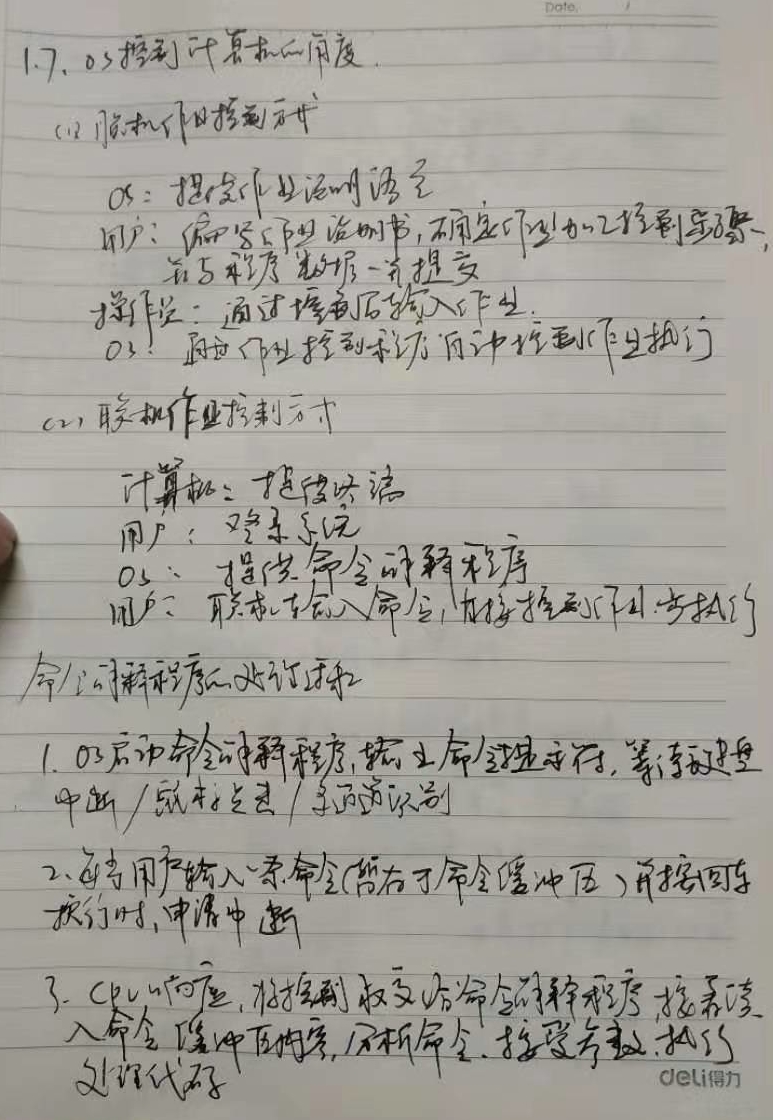 Date. /
1.7、OS控制计算机的角度.
(1) 脱机作业控制方式
OS: 提供作业说明语言
用户: 编写作业说明书, 确定作业加工控制步骤,
并与程序数据一并提交
操作员: 通过控制台输入作业.
OS: 通过作业控制程序自动控制作业执行
(2) 联机作业控制方式
计算机: 提供终端
用户: 登录系统
OS: 提供命令解释程序
用户: 联机输入命令, 直接控制作业步执行
命令解释程序的处理过程
1. OS启动命令解释程序, 输出命令提示符, 等待键盘
中断/鼠标点击/多通道识别
2. 每当用户输入一条命令(暂存于命令缓冲区)并按回车
换行时, 申请中断
3. CPU响应, 将控制权交给命令解释程序, 接着读
入命令缓冲区内容, 分析命令、接受参数, 执行
处理代码
deli得力